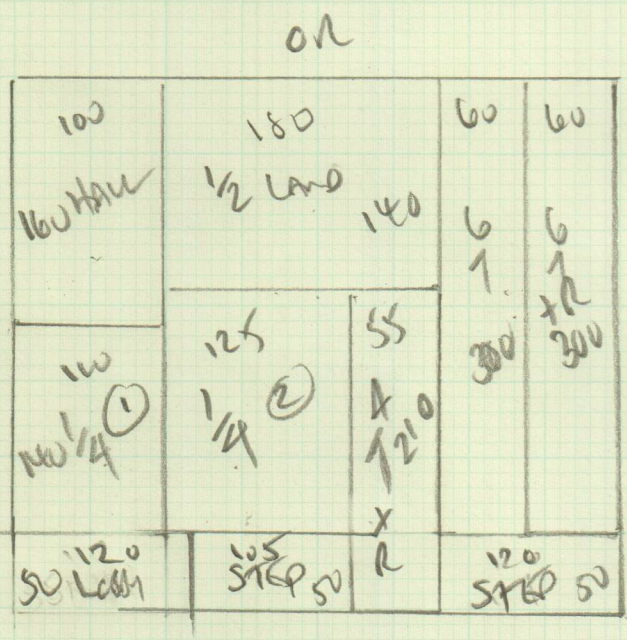 OR
100
160 HALL
180
1/2 LAND
140
60
6
↑
300
60
6
↑
+R
300
140 1/4 1
125
1/4 2
55
4
↑ 210
X
R
120
50
105
STEP 50
120
STEP 50